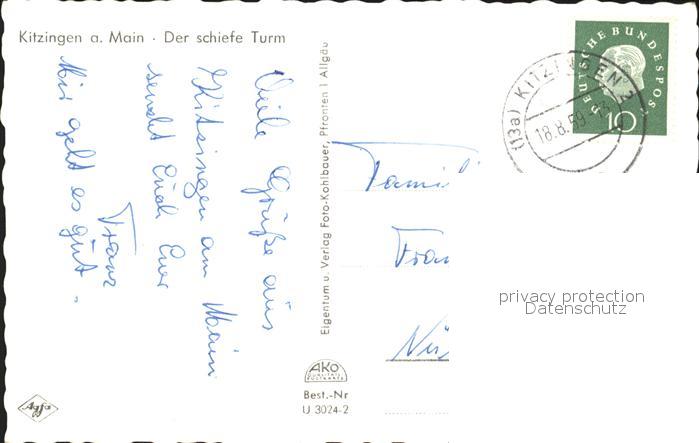 Kitzingen a. Main · Der schiefe Turm
Viele Grüße aus
Kitzingen am Main
sendet Euch Euer
Franz
Mir geht es gut.
Eigentum u. Verlag Foto-Kohlbauer, Pfronten i Allgäu
DEUTSCHE BUNDESPOST
10
(13a) KITZINGEN 2
18.8.59-13
Famil
Fran
Nü
privacy protection
Datenschutz
AKO
QUALITÄTS
POSTKARTE
Best.-Nr
U 3024-2
Agfa